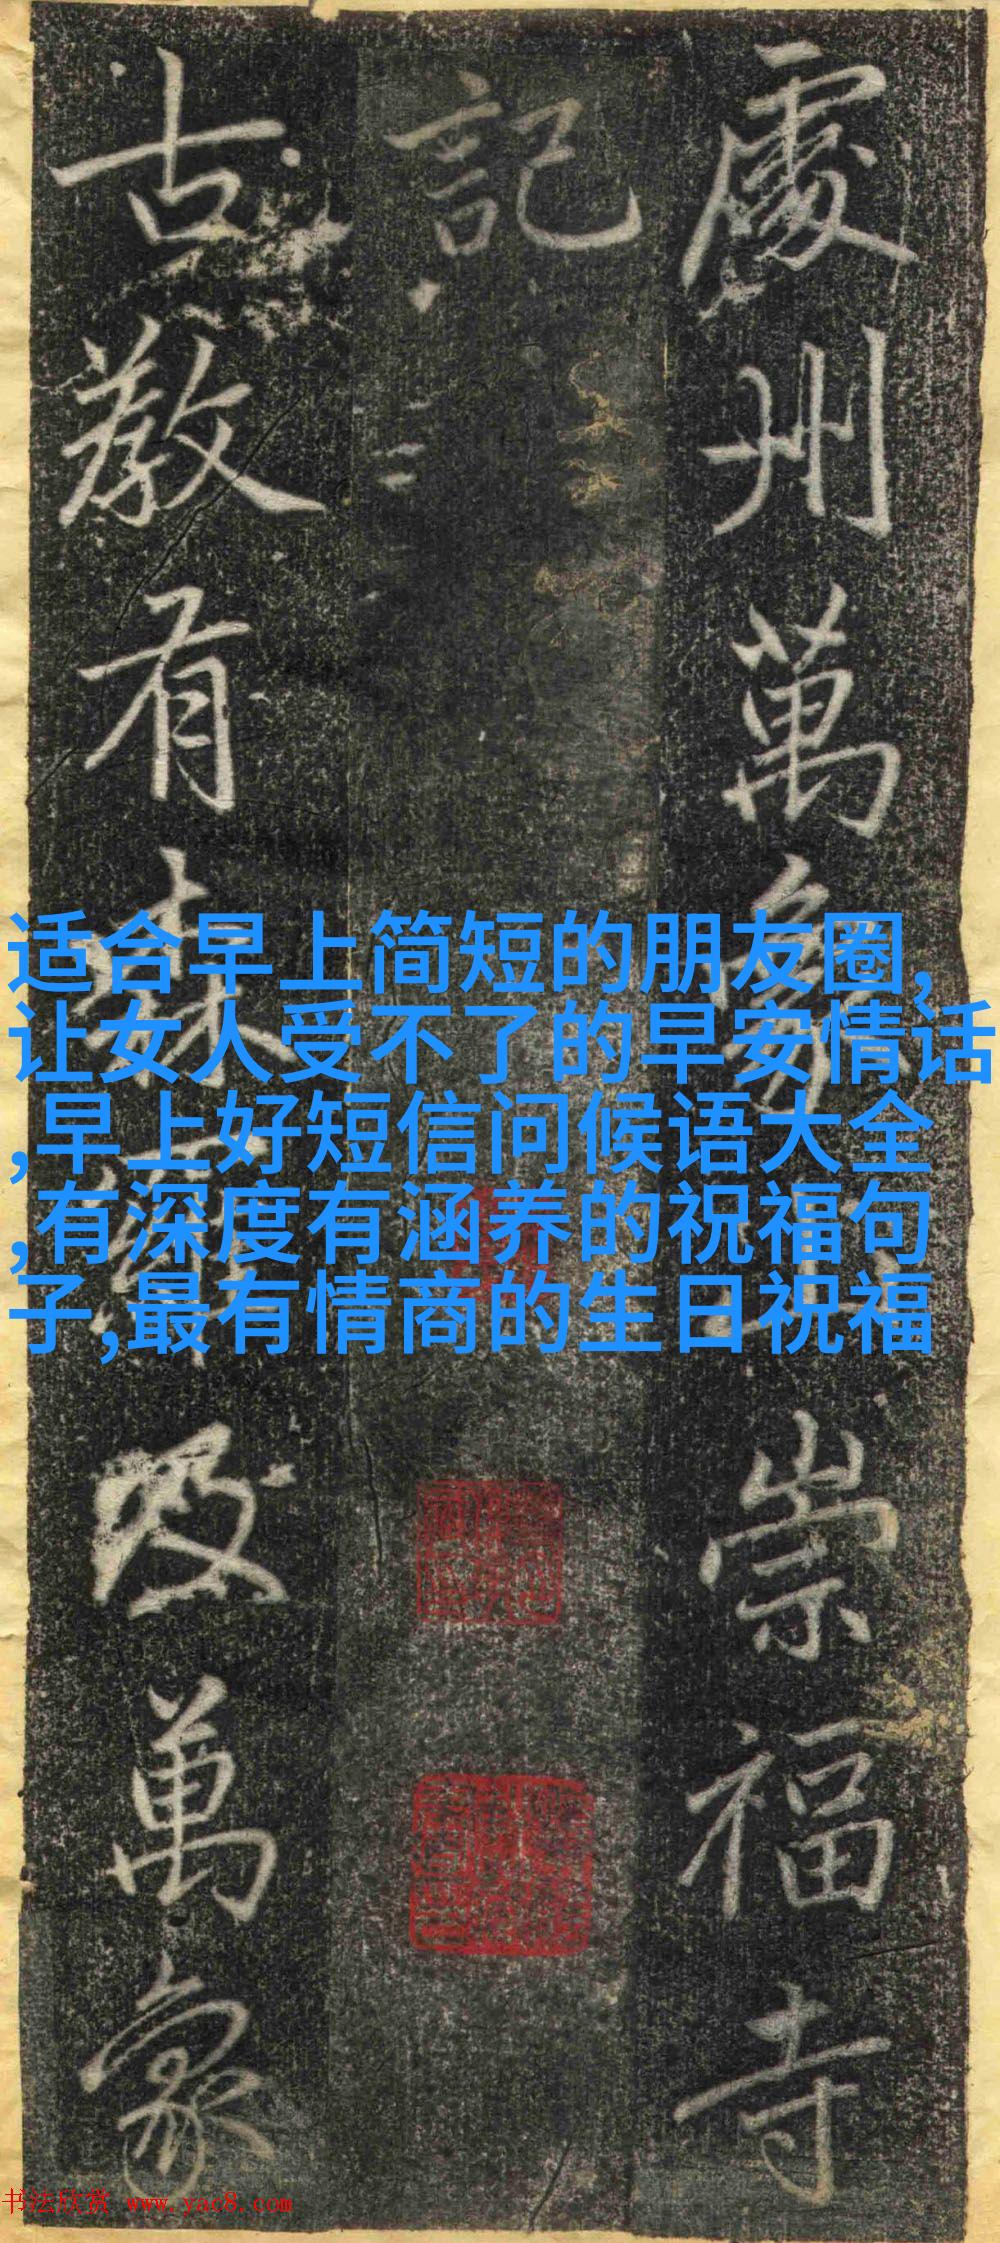 處州萬象山崇福寺
記
古教有味
及萬象
适合早上简短的朋友圈,
让女人受不了的早安情话
,早上好短信问候语大全
,有深度有涵养的祝福句
子,最有情商的生日祝福
书法欣赏 www.yac8.com